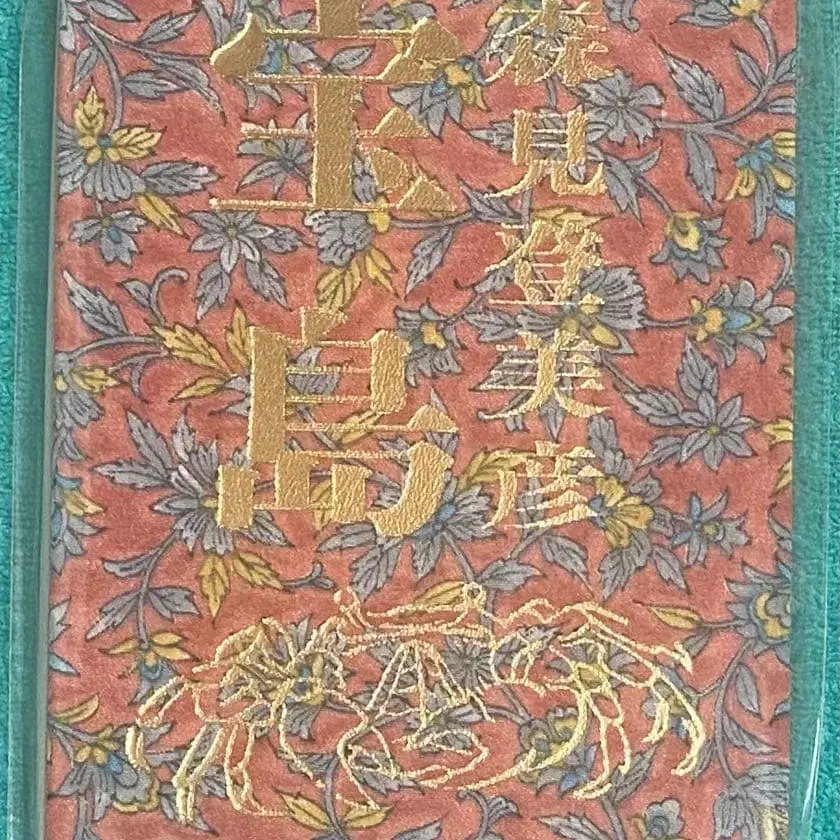 森見登美彦
宝島